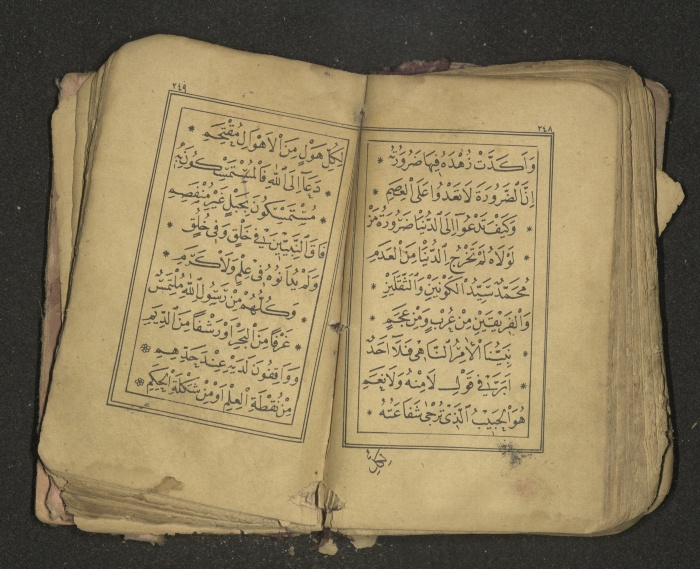 ٢٤٨
وَاَكَدَّتْ زُهْدَهُ فِيهَا ضَرُورَتُهُ *
اِنَّ الضَّرُورَةَ لَا تَعْدُوا عَلَى الْعِصَمِ *
وَكَيْفَ تَدْعُوا اِلَى الدُّنْيَا ضَرُورَةُ مَنْ *
لَوْلَاهُ لَمْ تَخْرُجِ الدُّنْيَا مِنَ الْعَدَمِ
مُحَمَّدٌ سَيِّدُ الْكَوْنَيْنِ وَالثَّقَلَيْنِ *
وَالْفَرِيقَيْنِ مِنْ عُرْبٍ وَمِنْ عَجَمٍ *
نَبِيُّنَا الْاٰمِرُ النَّاهِى فَلَا اَحَدٌ *
اَبَرَّ فِى قَوْلِ لَا مِنْهُ وَلَا نَعَمِ *
هُوَ الْحَبِيبُ الَّذِى تُرْجٰى شَفَاعَتُهُ *
لِكُلِّ
٢٤٩
لِكُلِّ هَوْلٍ مِنَ الْاَهْوَالِ مُقْتَحَمِ *
دَعَا اِلَى اللهِ فَالْمُسْتَمْسِكُونَ بِهِ *
مُسْتَمْسِكُونَ بِحَبْلٍ غَيْرِ مُنْفَصِمِ *
فَاقَ النَّبِيِّينَ فِى خَلْقٍ وَفِى خُلُقٍ *
وَلَمْ يُدَانُوهُ فِى عِلْمٍ وَلَا كَرَمِ *
وَكُلُّهُمْ مِنْ رَسُولِ اللهِ مُلْتَمِسٌ *
غَرْفًا مِنَ الْبَحْرِ اَوْ رَشْفًا مِنَ الدِّيَمِ *
وَوَاقِفُونَ لَدَيْهِ عِنْدَ حَدِّهِمِ *
مِنْ نُقْطَةِ الْعِلْمِ اَوْ مِنْ شَكْلَةِ الْحِكَمِ *